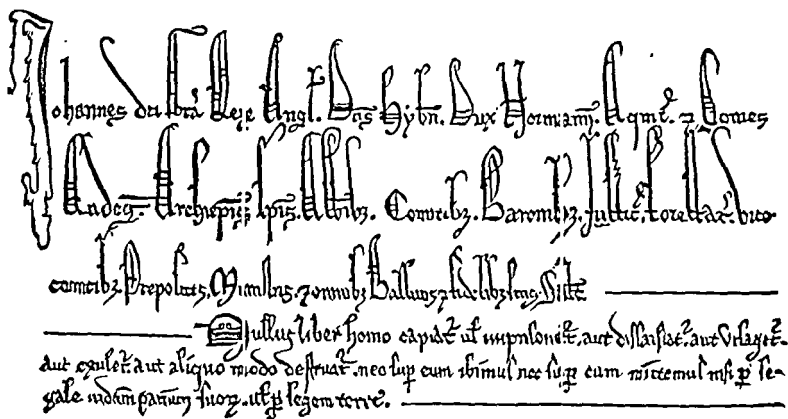 Johannes dei gra Rex Angl. Dns Hybn. Dux Normann. Aquit. & Comes
Andeg. Archiepis. Epis. Abbibz. Comitibz. Baronibz. Justic. Forestar. vice
comitibz. Prepositis. Ministris. & omnibz Ballivis & fidelibz suis. Saltm
Nullus liber homo capiatr vl imprisonetr. aut dissaisiatr. aut utlagetr.
aut exuletr. aut aliquo modo destruatr. nec sup eum ibimus nec sup eum mittemus nisi p le-
gale judicium parium suorz. vl p legem terre.